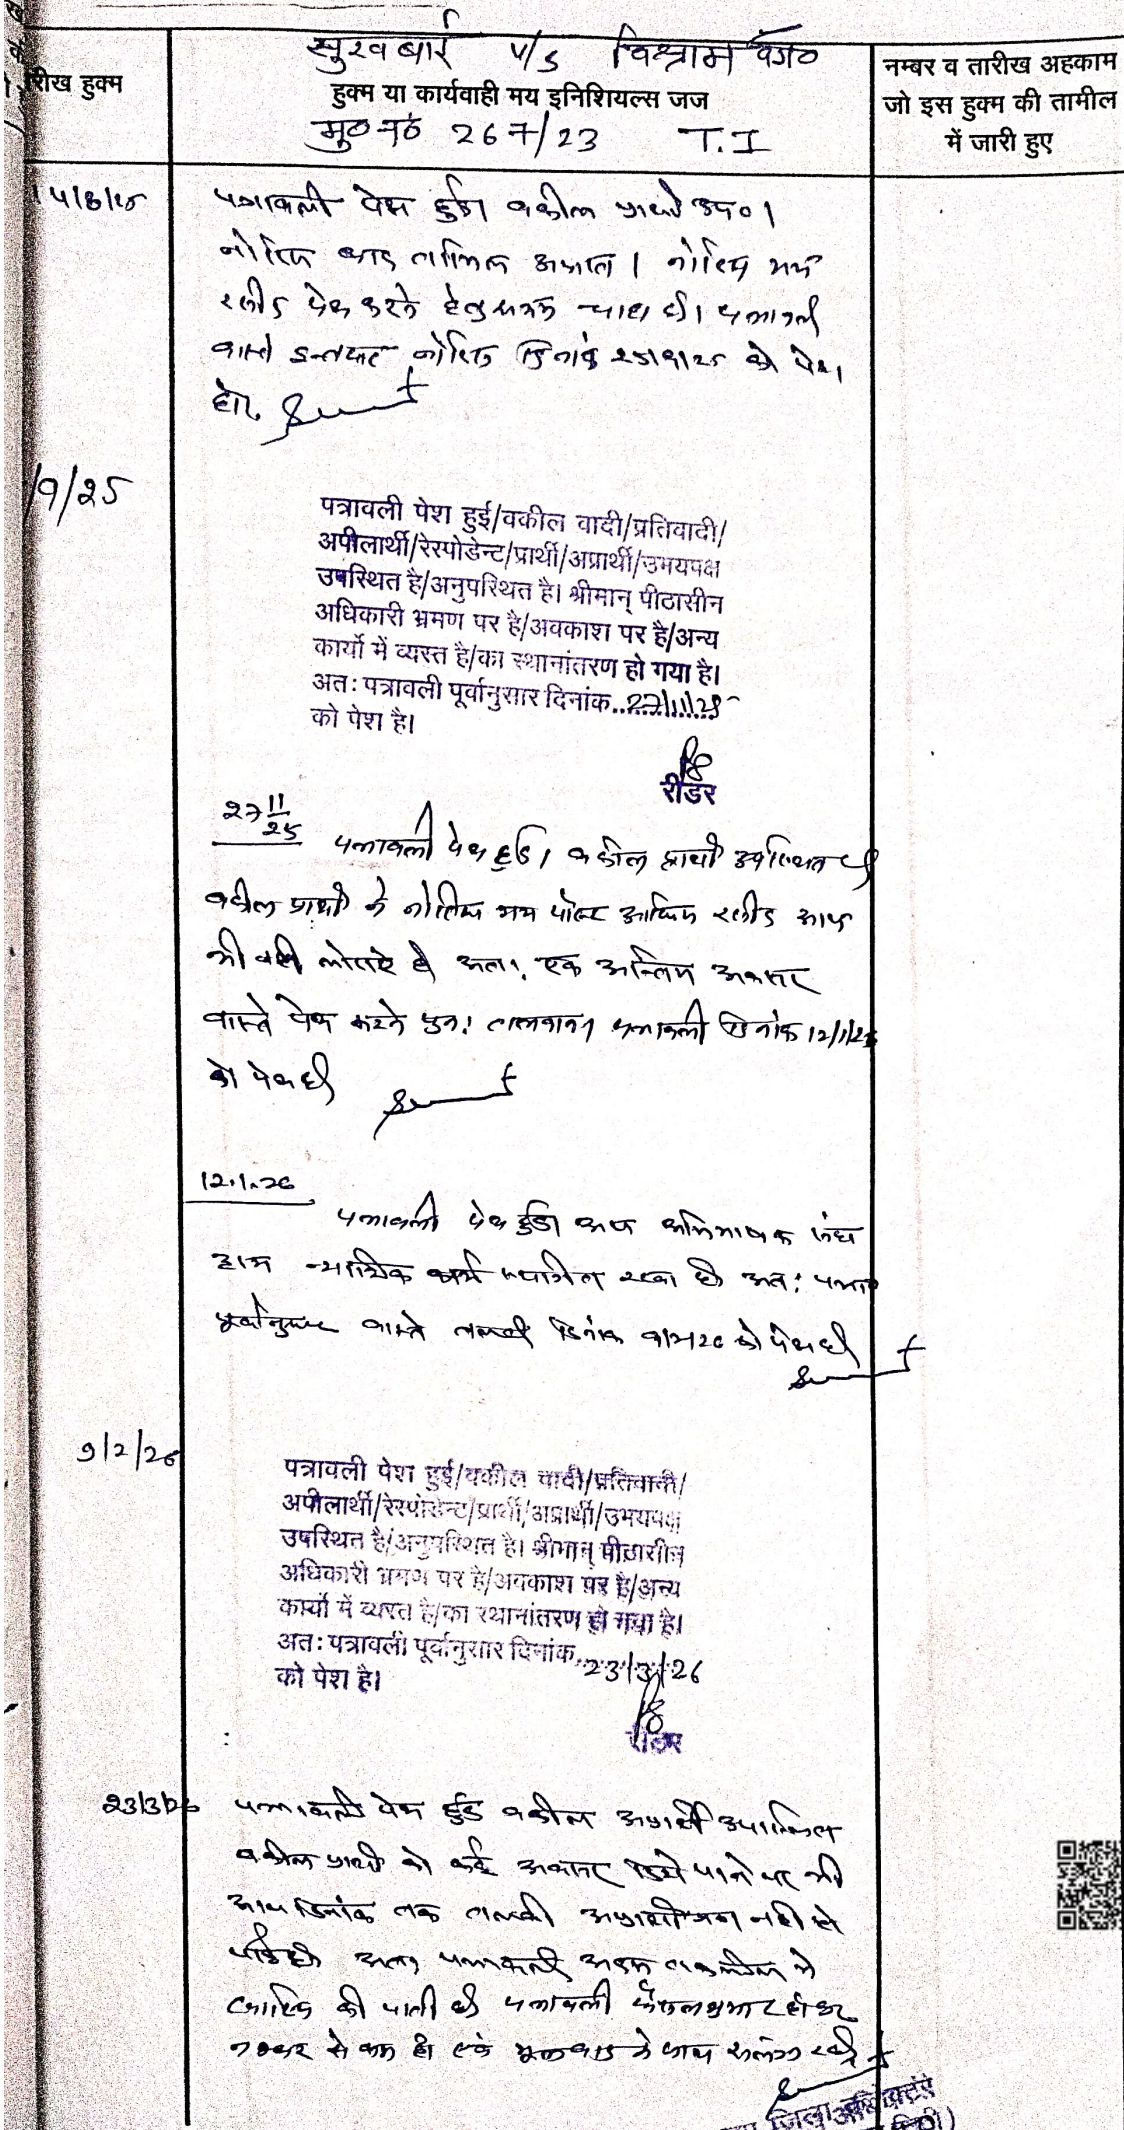 सुखबाई v/s विश्राम वगै०
रीख हुक्म
हुक्म या कार्यवाही मय इनिशियल्स जज
नम्बर व तारीख अहकाम
जो इस हुक्म की तामील
में जारी हुए
मु०नं० 267/23 T.I
पत्रावली पेश हुई। वकील प्रार्थी उप०।
नोटिस बाद तामिल अप्राप्त। नोटिस मय
रसीद पेश करने हेतु समय चाहा है। पत्रावली
वास्ते इन्तजार नोटिस दिनांक को पेश
हो।
/9/25
पत्रावली पेश हुई/वकील वादी/प्रतिवादी/
अपीलार्थी/रेस्पोडेन्ट/प्रार्थी/अप्रार्थी/उभयपक्ष
उपस्थित है/अनुपस्थित है। श्रीमान् पीठासीन
अधिकारी भ्रमण पर है/अवकाश पर है/अन्य
कार्यो में व्यस्त है/का स्थानांतरण हो गया है।
अतः पत्रावली पूर्वानुसार दिनांक..27/11/25
को पेश है।
रीडर
27 11/25
पत्रावली पेश हुई। वकील प्रार्थी उपस्थित है
वकील प्रार्थी ने नोटिस मय पोस्ट ऑफिस रसीद आज
भी नही है अतः एक अन्तिम अवसर
वास्ते पेश करने पुनः तलवाना पत्रावली दिनांक 12/1/26
को पेश हो
12.1.26
पत्रावली पेश हुई। आज अभिभाषक संघ
द्वारा न्यायिक कार्य स्थगित रखा है अतः पत्रा०
पूर्वानुसार वास्ते तलबी दिनांक को पेश हो
9/2/26
पत्रावली पेश हुई/वकील वादी/प्रतिवादी/
अपीलार्थी/रेस्पोडेन्ट/प्रार्थी/अप्रार्थी/उभयपक्ष
उपस्थित है/अनुपस्थित है। श्रीमान् पीठासीन
अधिकारी भ्रमण पर है/अवकाश पर है/अन्य
कार्यो में व्यस्त है/का स्थानांतरण हो गया है।
अतः पत्रावली पूर्वानुसार दिनांक..23/3/26
को पेश है।
रीडर
23/3/26 पत्रावली पेश हुई वकील अप्रार्थी उपस्थित
वकील प्रार्थी को कई अवसर दिये जाने पर भी
आज दिनांक तक तलबी अप्रार्थीगण नही हो
पाई है। अतः पत्रावली अदम तकमील मे
खारिज की जाती है पत्रावली फैसल शुमार होकर
नम्बर से कम हो एवं मूलवाद के साथ संलग्न रहे
जिला